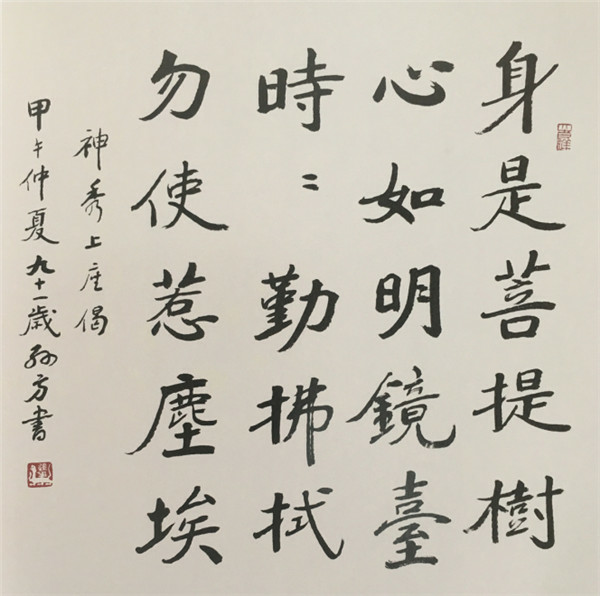 身是菩提樹
心如明鏡臺
時〻勤拂拭
勿使惹塵埃
神秀上座偈
甲午仲夏九十一歲孙方書